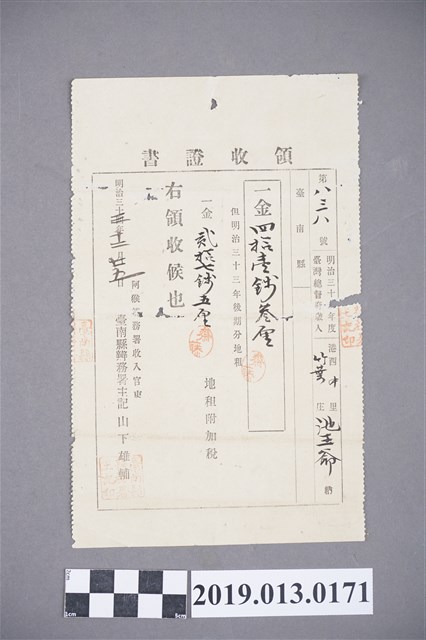 領收證書
第八三八號
明治三十 年度
臺灣總督府 入
港西中里
竹葉庄
池王爺
納
臺南縣
一金四拾壹錢叁厘
但明治三十三年後期分地租
一金貳拾七錢五厘
地租附加稅
右領收候也
明治三十
阿緱 務署收入官吏
臺南縣辨務署主記 山下雄輔
2019.013.0171
1cm
5cm